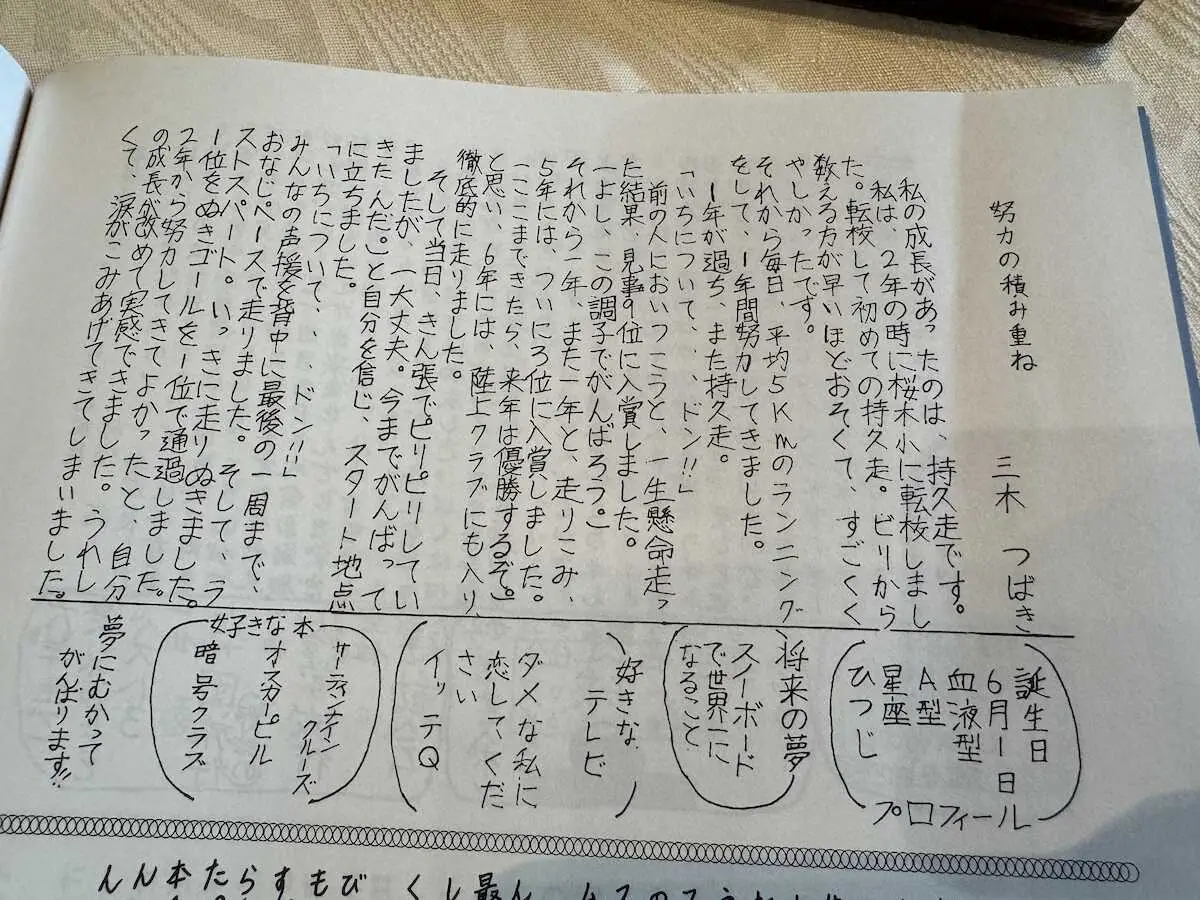 努力の積み重ね
三木 つばき
私の成長があったのは、持久走です。
私は、2年の時に桜木小に転校しまし
た。転校して初めての持久走。ビリから
数える方が早いほどおそくて、すごくく
やしかったです。
それから毎日、平均5Kmのランニング
をして、1年間努力してきました。
1年が過ち、また持久走。
「いちについて、、、ドン!!」
前の人においつこうと、一生懸命走っ
た結果、見事9位に入賞しました。
一よし、この調子でがんばろう。」
それから一年、また一年と、走りこみ、
5年には、ついに3位に入賞しました。
(ここまできたら、来年は優勝するぞ。)
と思い、6年には、陸上クラブにも入り、
徹底的に走りました。
そして当日、きん張でピリピリしてい
ましたが、一大丈夫。今までがんばって
きたんだ。」と自分を信じ、スタート地点
に立ちました。
「いちについて、、、ドン!!」
みんなの声援を背中に最後の一周まで、
おなじペースで走りました。そして、ラ
ストスパート。いっきに走りぬきました。
1位をぬきゴールを1位で通過しました。
2年から努力してきてよかったと、自分
の成長が改めて実感できました。うれし
くて、涙がこみあげてきてしまいました。
プロフィール
誕生日
6月1日
血液型
A型
星座
ひつじ
将来の夢
スイーボード
で世界一に
なること
好きな
テレビ
ダメな私に
恋してくだ
さい
イッテQ
好きな本
サーティナイン
クルーズ
オスカーピル
暗号クラブ
夢にむかって
がんばります!!